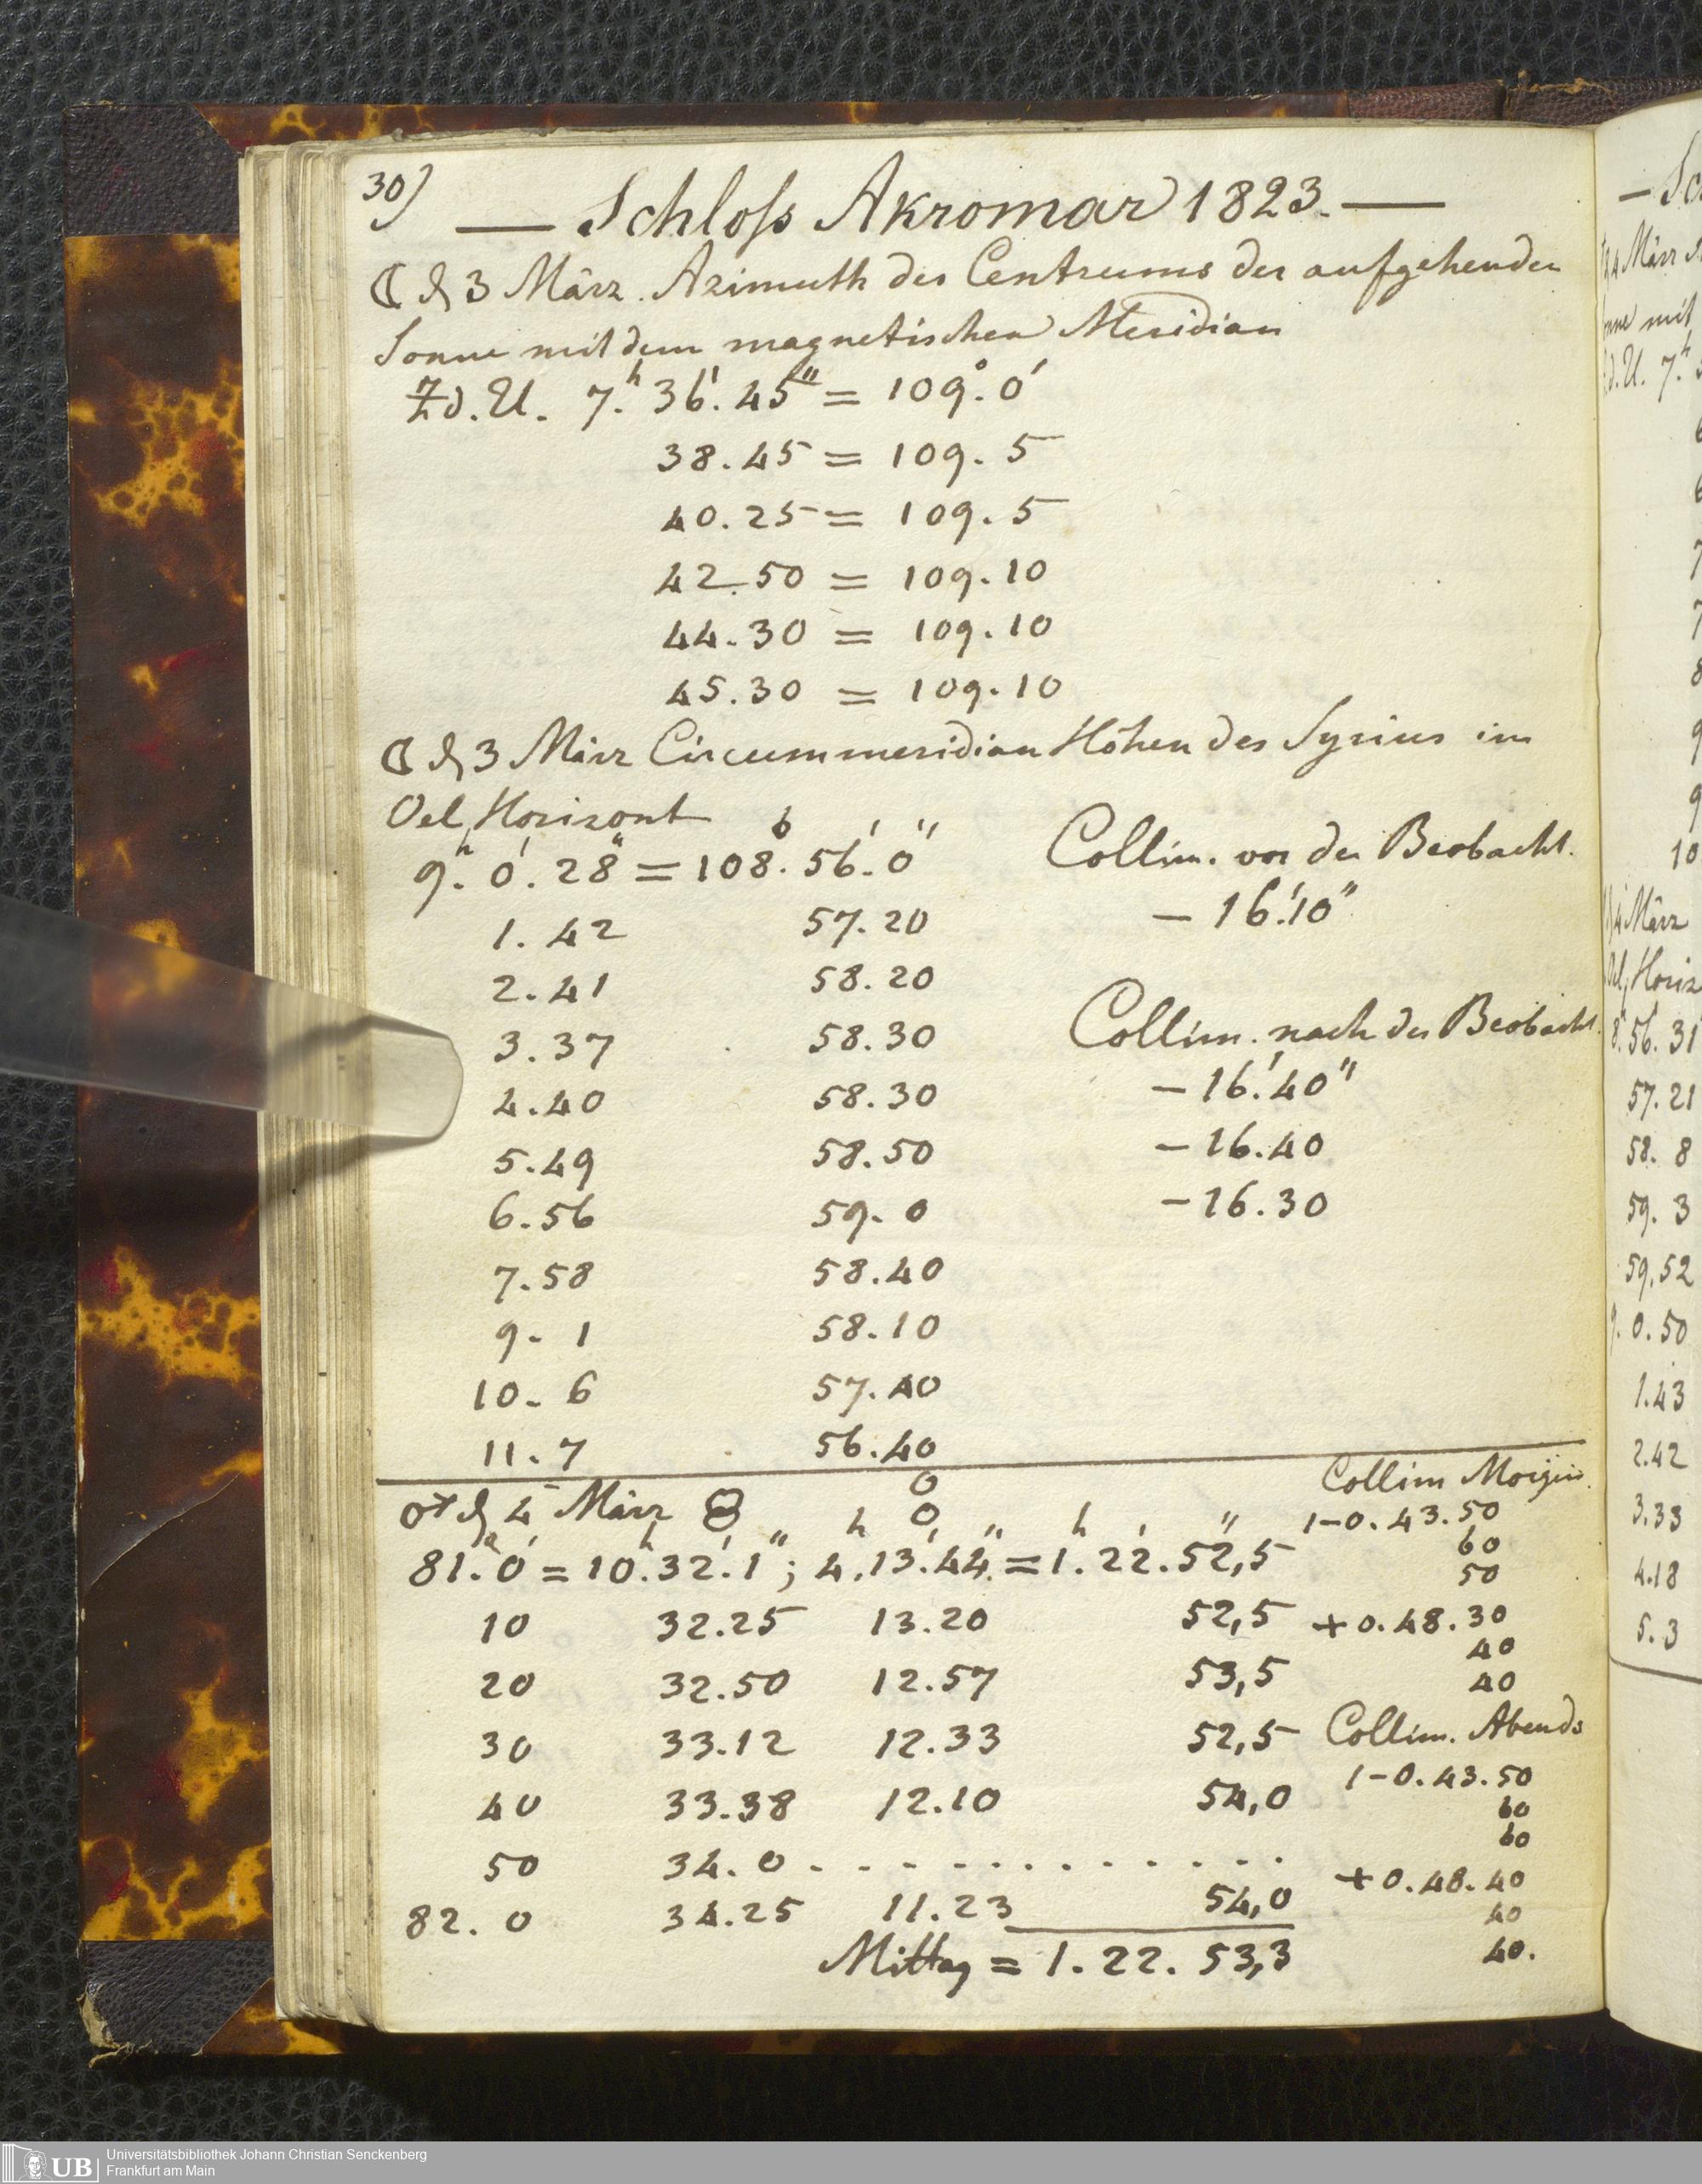 30)
— Schloſs Akromar 1823. —
☾ d 3 März. Azimuth des Centrums der aufgehenden
Sonne mit dem magnetischen Meridian
Z d. U. 7.h 36.' 45" = 109.° 0'
38.45 = 109. 5
40.25 = 109. 5
42.50 = 109.10
44.30 = 109.10
45.30 = 109.10
☾ d 3 März Circummeridian Höhen des Syrius im
Oel, Horizont
9.h 0.' 28" = 108.° 56.' 0"
1. 42 57. 20
2. 41 58. 20
3. 37 58. 30
4. 40 58. 30
5. 49 58. 50
6. 56 59. 0
7. 58 58. 40
9. 1 58. 10
10. 6 57. 40
11. 7 56. 40
Collim. vor der Beobacht.
– 16.' 10"
Collim. nach der Beobacht.
– 16.' 40"
– 16. 40
– 16. 30
♂ d 4 März
81.° 0' = 10.h 32.' 1" ; 4.h 13.' 44." = 1.h 22.' 52,5"
10 32.25 13.20 52,5
20 32.50 12.57 53,5
30 33.12 12.33 52,5
40 33.38 12.10 54,0
50 34. 0 . . . . . . . . . . . . .
82. 0 34.25 11.23 54,0
Mittag = 1. 22. 53,3
Collim Morgen.
1–0. 43. 50
60
50
+ 0. 48. 30
40
40
Collim. Abends
1–0. 43. 50
60
60
+ 0. 48. 40
40
40.
– Sc
4 März
Sonne mit
d. U. 7.h
10
4 März
Oel, Horiz
8. 56. 31
57. 21
58. 8
59. 3
59. 52
9. 0. 50
1. 43
2. 42
3. 33
4. 18
5. 3
UB
Universitätsbibliothek Johann Christian Senckenberg
Frankfurt am Main